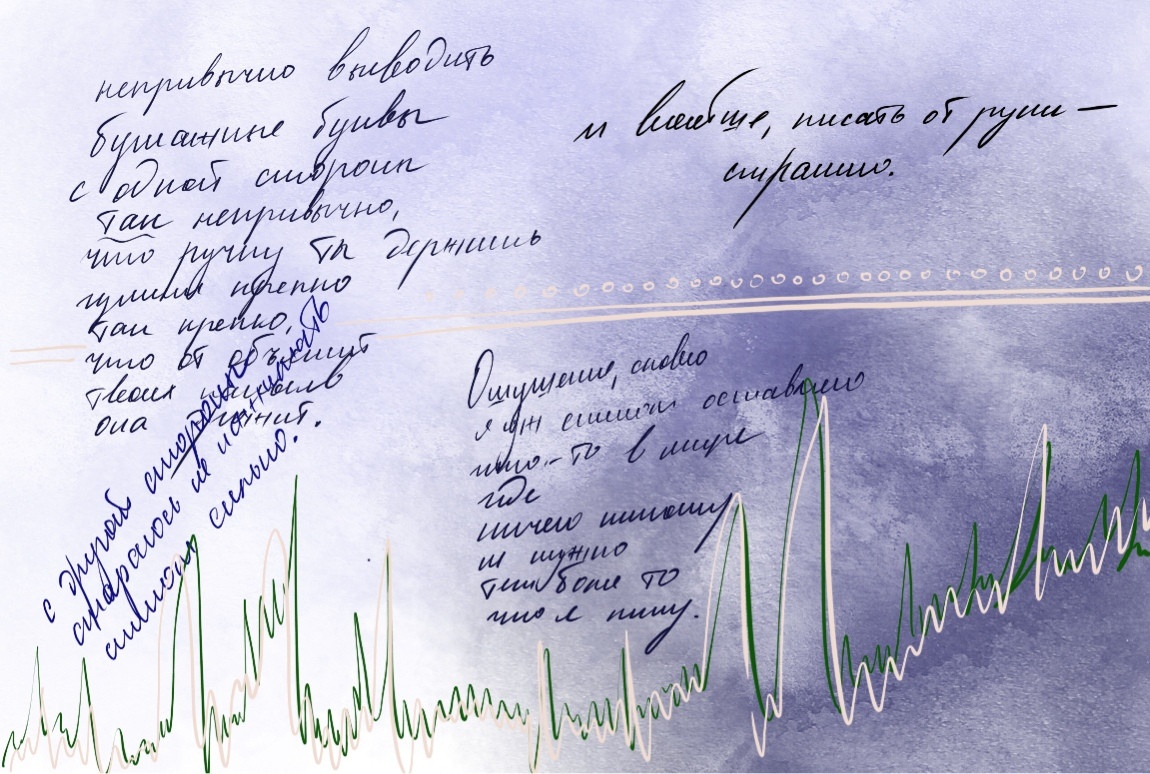 непривычно выводить
бумажные буквы
с одной стороны
так непривычно,
что ручку ты держишь
крепко
так крепко,
что от объятий
твоих
она
с другой стороны
стараюсь не нажимать
слишком сильно..
и вообще, писать от руки —
страшно.
Ощущение, словно
я уж слишком оставляю
что-то в мире
где
ничего никому
не нужно
тем боле то
что я пишу.